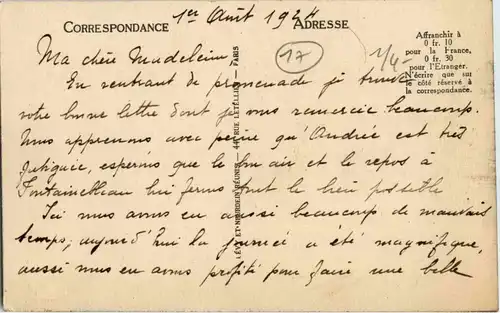 CORRESPONDANCE
1er Août 1924
ADRESSE
Affranchir à
0 fr. 10
pour la France,
0 fr. 30
pour l'Etranger.
N'écrire que sur
le côté réservé à
la correspondance.
17
1/4-
Ma chère Madeleine
En rentrant de promenade je trouve
votre bonne lettre dont je vous remercie beaucoup.
Nous apprenons avec peine qu'Andrée est très
fatiguée, espérons que le bon air et le repos à
Fontainebleau lui feront tout le bien possible
Ici nous avons eu aussi beaucoup de mauvais
temps; aujourd'hui la journée a été magnifique,
aussi nous en avons profité pour faire une belle
LÉVY ET NEURDEIN RÉUNIS 44, RUE LETELLIER - PARIS